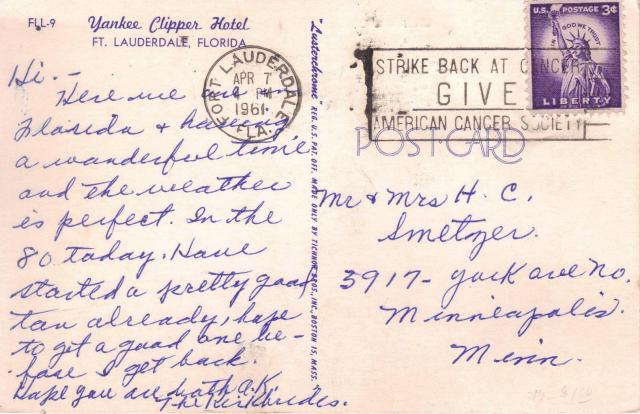 FLL-9
Yankee Clipper Hotel
FT. LAUDERDALE, FLORIDA
Hi. -
Here we are in
Florida & having
a wonderful time
and the weather
is perfect. In the
80 today. Have
started a pretty good
tan already, hope
to get a good one be-
fore I get back.
Hope you are both O.K.
The Kirkbrides.
"Lusterchrome" REG. U.S. PAT. OFF. MADE ONLY BY TICHNOR BROS., INC., BOSTON 15, MASS.
FORT LAUDERDALE
APR 7
PM
1961
FLA.
STRIKE BACK AT CANCER
GIVE
AMERICAN CANCER SOCIETY
U.S. POSTAGE 3¢
IN GOD WE TRUST
LIBERTY
POST CARD
Mr & Mrs H. C.
Smetzer.
3917- York ave No.
Minneapolis.
Minn.